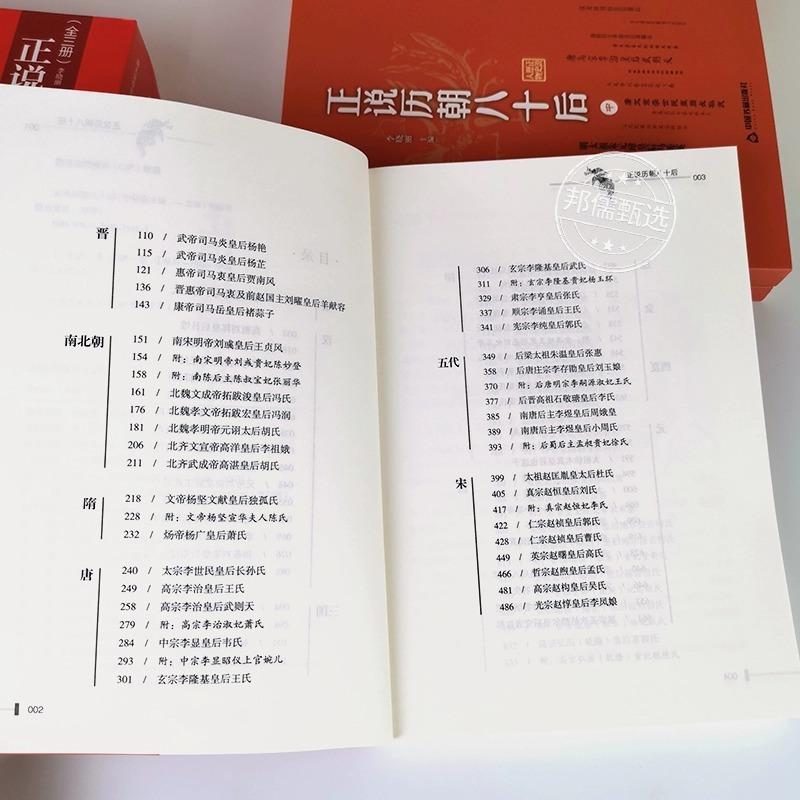 (全三册)
正说
正说历朝八十后
中
李晓丽 主编
中国书籍出版社
晋
110 / 武帝司马炎皇后杨艳
115 / 武帝司马炎皇后杨芷
121 / 惠帝司马衷皇后贾南风
136 / 晋惠帝司马衷及前赵国主刘曜皇后羊献容
143 / 康帝司马岳皇后褚蒜子
南北朝
151 / 南宋明帝刘彧皇后王贞风
154 / 附：南宋明帝刘彧贵妃陈妙登
158 / 附：南陈后主陈叔宝妃张丽华
161 / 北魏文成帝拓跋浚皇后冯氏
176 / 北魏孝文帝拓跋宏皇后冯润
181 / 北魏孝明帝元诩太后胡氏
206 / 北齐文宣帝高洋皇后李祖娥
211 / 北齐武成帝高湛皇后胡氏
隋
218 / 文帝杨坚文献皇后独孤氏
228 / 附：文帝杨坚宣华夫人陈氏
232 / 炀帝杨广皇后萧氏
唐
240 / 太宗李世民皇后长孙氏
249 / 高宗李治皇后王氏
258 / 高宗李治皇后武则天
279 / 附：高宗李治淑妃萧氏
284 / 中宗李显皇后韦氏
293 / 附：中宗李显昭仪上官婉儿
301 / 玄宗李隆基皇后王氏
002
正说历朝八十后 003
邦儒甄选
306 / 玄宗李隆基皇后武氏
311 / 附：玄宗李隆基贵妃杨玉环
329 / 肃宗李亨皇后张氏
337 / 顺宗李诵皇后王氏
341 / 宪宗李纯皇后郭氏
五代
349 / 后梁太祖朱温皇后张惠
358 / 后唐庄宗李存勖皇后刘玉娘
370 / 附：后唐明宗李嗣源淑妃王氏
377 / 后晋高祖石敬瑭皇后李氏
385 / 南唐后主李煜皇后周娥皇
389 / 南唐后主李煜皇后小周氏
393 / 附：后蜀后主孟昶贵妃徐氏
宋
399 / 太祖赵匡胤皇太后杜氏
405 / 真宗赵恒皇后刘氏
417 / 附：真宗赵恒妃李氏
422 / 仁宗赵祯皇后郭氏
428 / 仁宗赵祯皇后曹氏
449 / 英宗赵曙皇后高氏
466 / 哲宗赵煦皇后孟氏
481 / 高宗赵构皇后吴氏
486 / 光宗赵惇皇后李凤娘